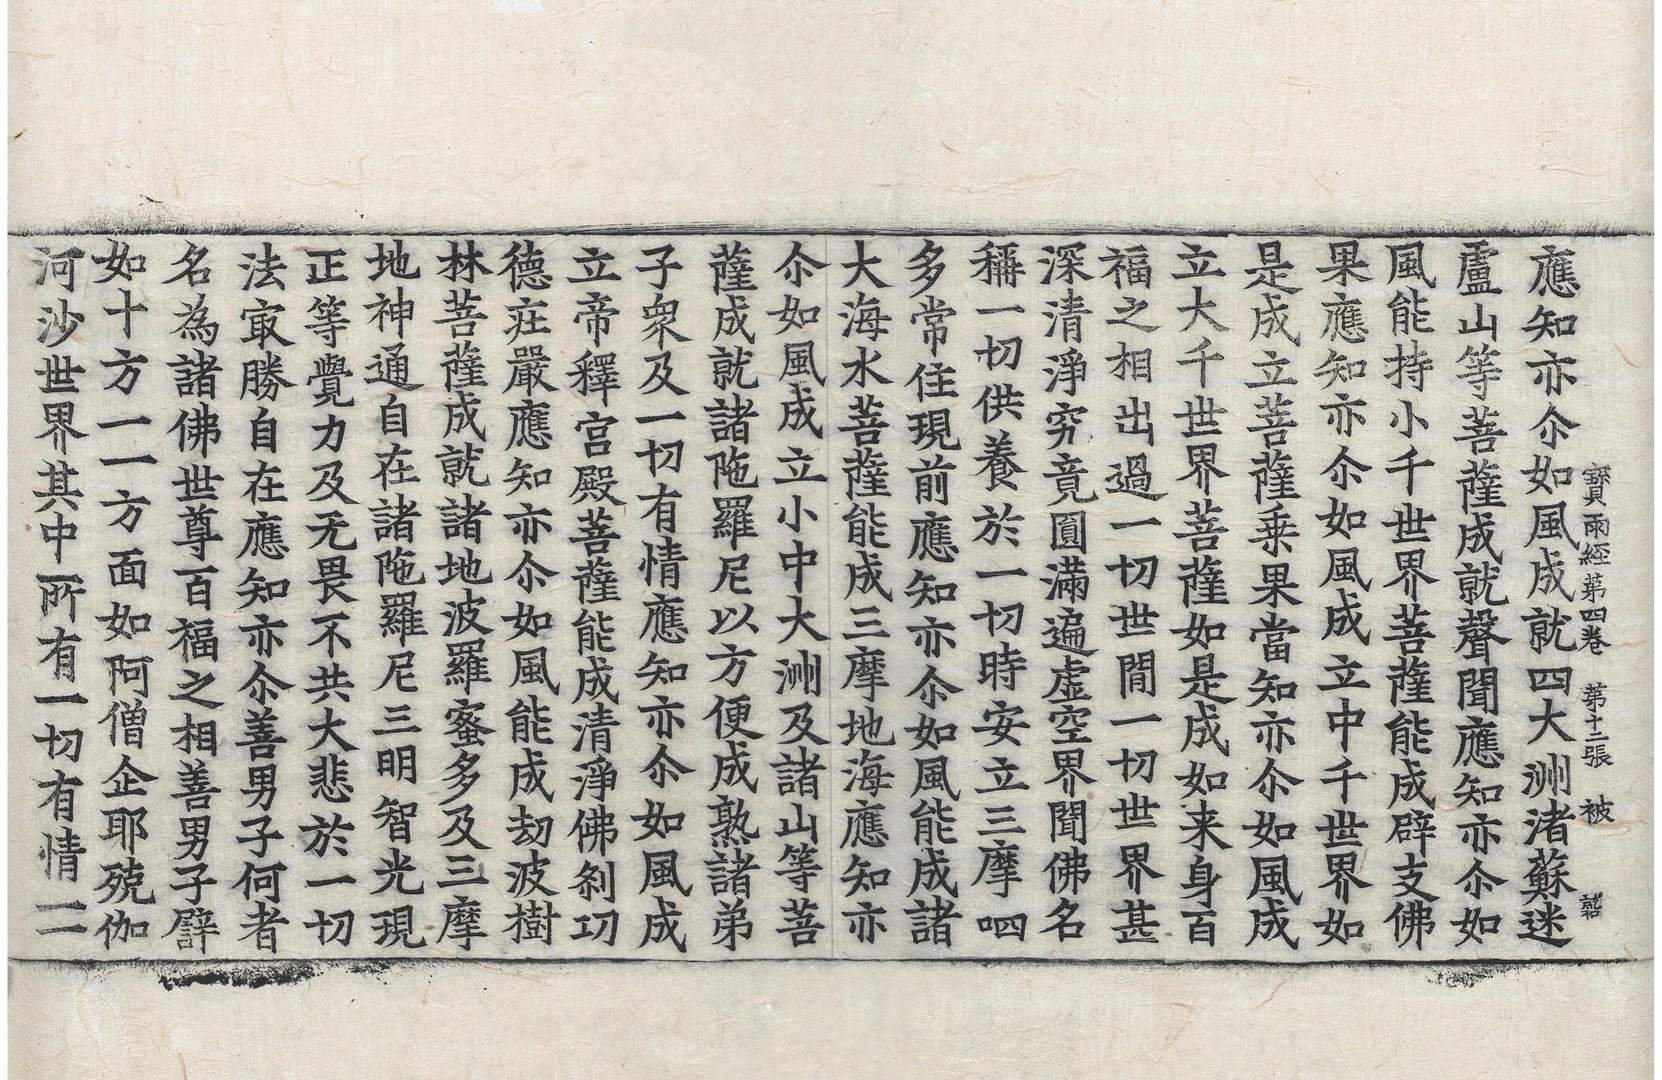 寶雨經第四卷 第十二張 被
應知亦尒如風成就四大洲渚蘇迷
盧山等菩薩成就聲聞應知亦尒如
風能持小千世界菩薩能成辟支佛
果應知亦尒如風成立中千世界如
是成立菩薩乗果當知亦尒如風成
立大千世界菩薩如是成如来身百
福之相出過一切世間一切世界甚
深清淨究竟圓滿遍虛空界聞佛名
稱一切供養於一切時安立三摩呬
多常住現前應知亦尒如風能成諸
大海水菩薩能成三摩地海應知亦
尒如風成立小中大洲及諸山等菩
薩成就諸陁羅尼以方便成熟諸弟
子衆及一切有情應知亦尒如風成
立帝釋宫殿菩薩能成清淨佛刹功
德莊嚴應知亦尒如風能成劫波樹
林菩薩成就諸地波羅蜜多及三摩
地神通自在諸陁羅尼三明智光現
正等覺力及无畏不共大悲於一切
法㝡勝自在應知亦尒善男子何者
名為諸佛世尊百福之相善男子譬
如十方一一方面如阿僧企耶殑伽
河沙世界其中所有一切有情二